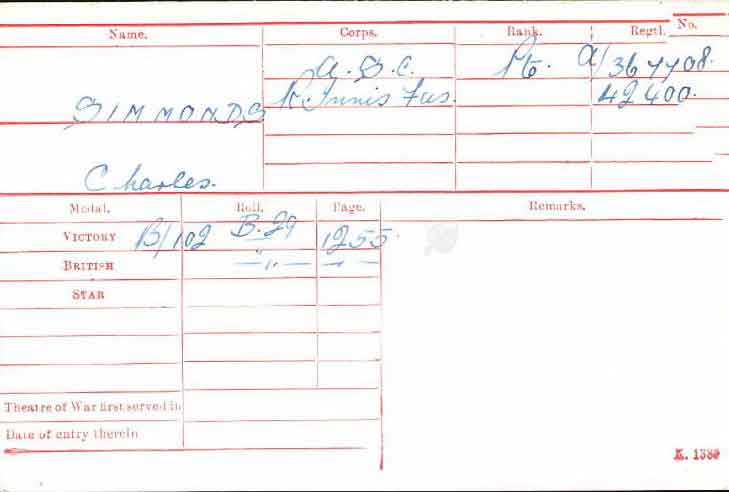 Name. Corps. Rank. Regtl. No.
A.S.C. Pte. A/367708.
SIMMONDS R. Innis Fus. 42400.
Charles.
Medal. Roll. Page. Remarks.
VICTORY B/102 B.29 1255.
BRITISH —„— —„—
STAR
Theatre of War first served in
Date of entry therein
K. 1380